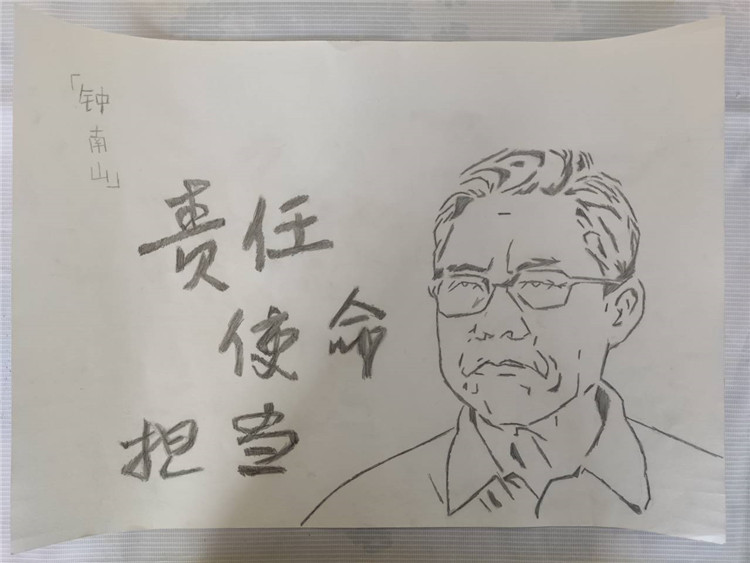 「钟南山」
责任
使命
担当